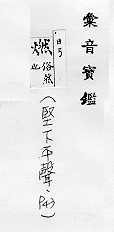 彙音寶鑑
日5
燃
俗然
也
(堅下平聲、P43)